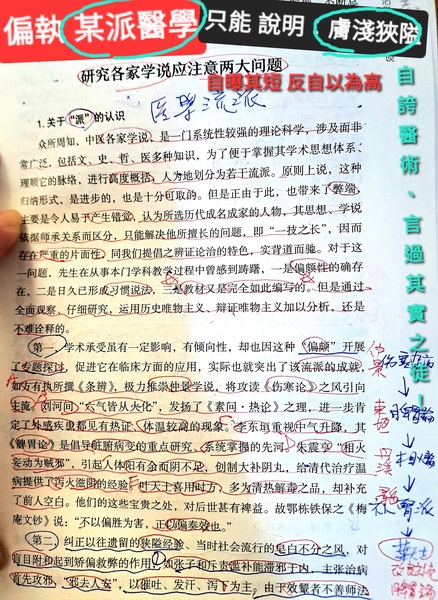 偏執 某派醫學 只能 說明 膚淺狹隘
研究各家学说应注意两大问题
自曝其短 反自以為高
自誇醫術、言過其實之徒！
医學流派
1.关于“派”的认识
众所周知，中医各家学说，是一门系统性较强的理论科学，涉及面非
常广泛，包括文、史、哲、医多种知识，为了便于掌握其学术思想体系、
理顺它的脉络，进行高度概括，人为地划分为若干流派。原则上说，这种
归纳形式，是进步的，也是十分可取的。但是正由于此，也带来了弊端，
主要是令人易于产生错觉，认为所选历代成名成家的人物，其思想、学说
依据师承关系而区分，只能解决他所擅长的问题，即“一技之长”，因而
存在严重的片面性，同我们提倡之辨证论治的特色，实背道而驰。对于这
一问题，先生在从事本门学科教学过程中曾感到踌躇，一是偏颇性的确存
在，二是日久已形成习惯说法，三是教材又是完全如此编写的。但是通过
全面观察，仔细研究，运用历史唯物主义、辩证唯物主义加以分析，还是
不难诠释的。
第一，学术承受虽有一定影响，有倾向性，却也因这种“偏颇”开展
了专题探讨，促进它在临床方面的应用，实际也就突出了该流派的成就，
如方有执所撰《条辨》，极力推崇仲景学说，将攻读《伤寒论》之风引向
主流。刘河间“六气皆从火化”，发扬了《素问·热论》之理，进一步肯
定了外感疾患都见有热证、体温较高的现象。李东垣重视中气升降，其
《脾胃论》是倡导脏腑病变的重点研究，系统掌握的先河。朱震亨“相火
妄动为贼邪”，引起人体阳有余而阴不足，创制大补阴丸，给清代治疗温
病提供了泻火滋阴的经验。叶天士喜用时方，多为清热解毒之品，却补充
了前人空白。他们的这些宝贵之处，对后世甚有裨益。故鄂栋铁保之《梅
庵文钞》说：“不以偏胜为害，正以偏奏效也。”
第二，纠正以往遗留的狭隘经验、当时社会流行的皂白不分之风，对
盲目附和起到矫偏救弊的作用。如张子和斥责滥补能滞邪于内，主张治病
首先攻邪，“邪去人安”，以催吐、发汗、泻下为主。由于效颦者不善师法